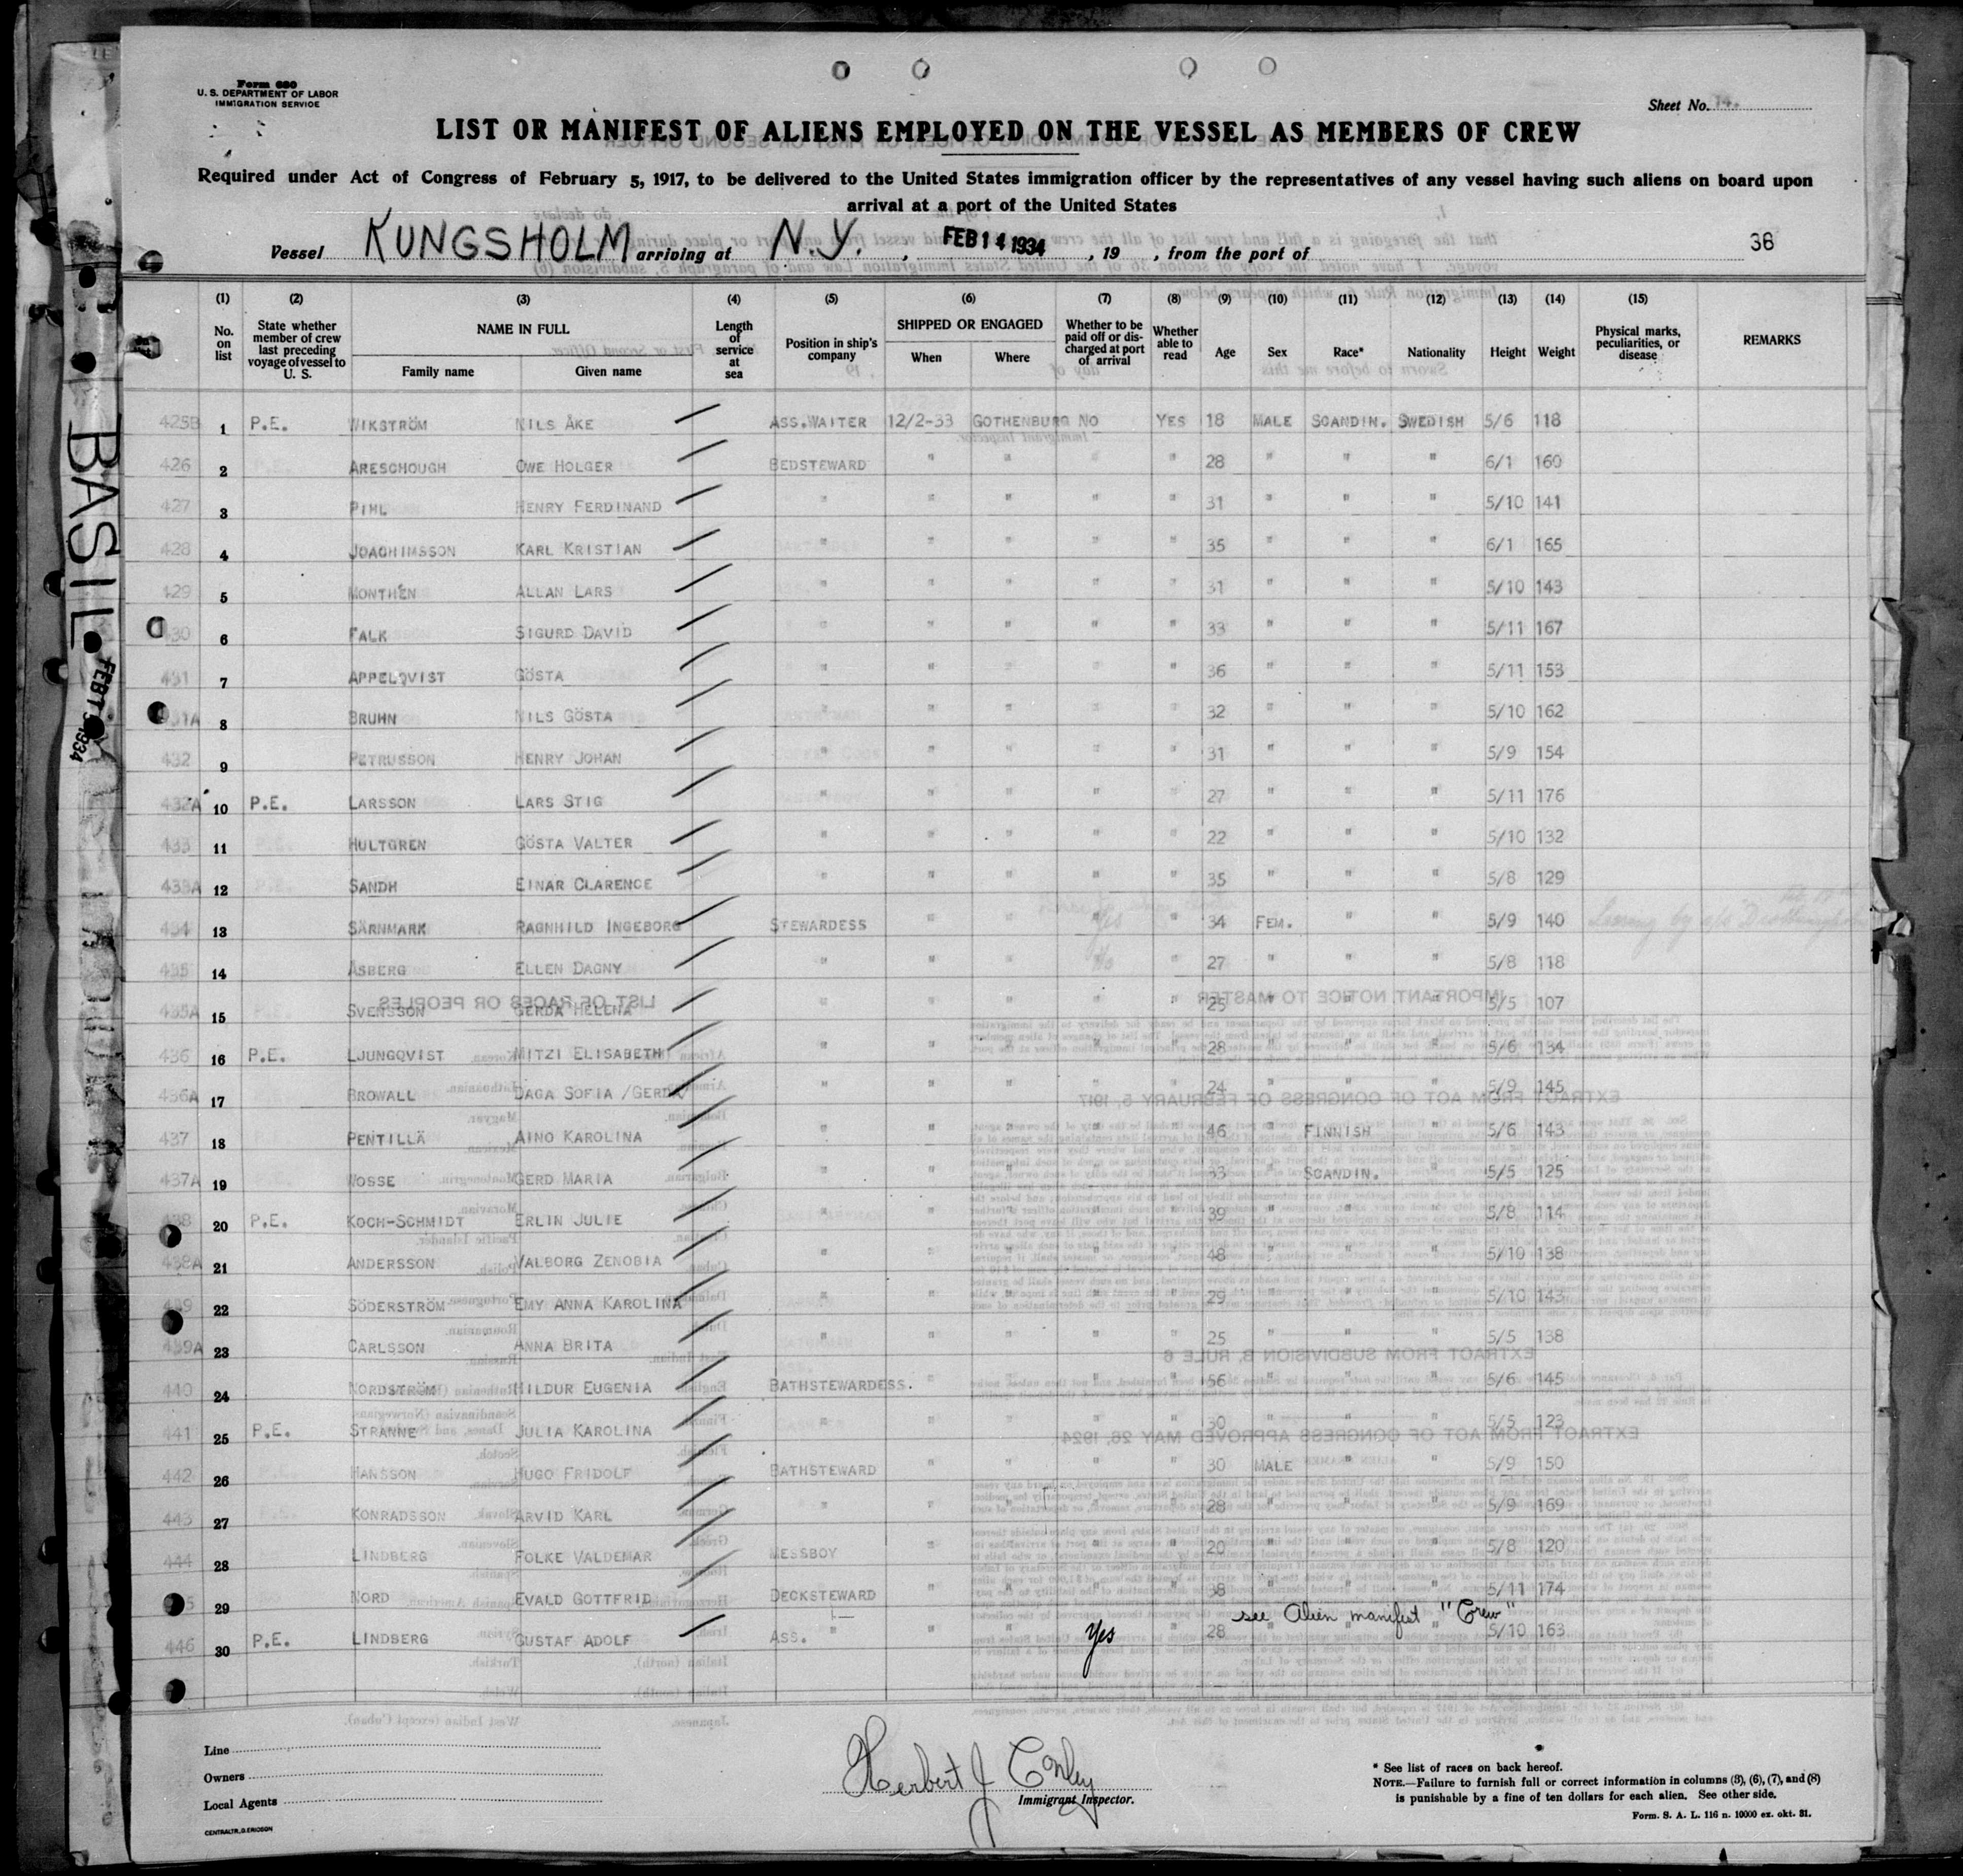 Form 680
U. S. DEPARTMENT OF LABOR
IMMIGRATION SERVICE
Sheet No.
LIST OR MANIFEST OF ALIENS EMPLOYED ON THE VESSEL AS MEMBERS OF CREW
Required under Act of Congress of February 5, 1917, to be delivered to the United States immigration officer by the representatives of any vessel having such aliens on board upon
arrival at a port of the United States
Vessel KUNGSHOLM arriving at N.Y. , FEB 14 1934 , 19 , from the port of 36
(1) (2) (3) (4) (5) (6) (7) (8) (9) (10) (11) (12) (13) (14) (15)
No. on list | State whether member of crew last preceding voyage of vessel to U. S. | NAME IN FULL | Family name | Given name | Length of service at sea | Position in ship's company | SHIPPED OR ENGAGED | When | Where | Whether to be paid off or discharged at port of arrival | Whether able to read | Age | Sex | Race* | Nationality | Height | Weight | Physical marks, peculiarities, or disease | REMARKS
425B 1 P.E. WIKSTRÖM NILS ÅKE ASS.WAITER 12/2-33 GOTHENBURG NO YES 18 MALE SCANDIN. SWEDISH 5/6 118
426 2 ARESCHOUGH OWE HOLGER BEDSTEWARD " " " " 28 " " " 6/1 160
427 3 PIHL HENRY FERDINAND " " " " " 31 " " " 5/10 141
428 4 JOACHIMSSON KARL KRISTIAN " " " " " 35 " " " 6/1 165
429 5 MONTHÉN ALLAN LARS " " " " " 31 " " " 5/10 143
430 6 FALK SIGURD DAVID " " " " " 33 " " " 5/11 167
431 7 APPELQVIST GÖSTA " " " " " 36 " " " 5/11 153
431A 8 BRUHN NILS GÖSTA " " " " " 32 " " " 5/10 162
432 9 PETRUSSON HENRY JOHAN " " " " " 31 " " " 5/9 154
432A 10 P.E. LARSSON LARS STIG " " " " " 27 " " " 5/11 176
433 11 HULTGREN GÖSTA VALTER " " " " " 22 " " " 5/10 132
433A 12 SANDH EINAR CLARENCE " " " " " 35 " " " 5/8 129
434 13 SÄRNMARK RAGNHILD INGEBORG STEWARDESS " " Yes " 34 FEM. " " 5/9 140 Leaving by s/s Drottningholm
435 14 ÅSBERG ELLEN DAGNY " " " No " 27 " " " 5/8 118
435A 15 SVENSSON GERDA HELENA " " " " " 25 " " " 5/5 107
436 16 P.E. LJUNGQVIST MITZI ELISABETH " " " " " 28 " " " 5/6 134
436A 17 BROWALL DAGA SOFIA /GERDA/ " " " " " 24 " " " 5/9 145
437 18 PENTILLÄ AINO KAROLINA " " " " " 46 " FINNISH " 5/6 143
437A 19 WOSSE GERD MARIA " " " " " 33 " SCANDIN. " 5/5 125
438 20 P.E. KOCH-SCHMIDT ERLIN JULIE " " " " " 39 " " " 5/8 114
438A 21 ANDERSSON VALBORG ZENOBIA " " " " " 48 " " " 5/10 138
439 22 SÖDERSTRÖM EMY ANNA KAROLINA " " " " " 29 " " " 5/10 143
439A 23 CARLSSON ANNA BRITA " " " " " 25 " " " 5/5 138
440 24 NORDSTRÖM HILDUR EUGENIA BATHSTEWARDESS. " " " " 56 " " " 5/6 145
441 25 P.E. STRANNE JULIA KAROLINA " " " " " 30 " " " 5/5 123
442 26 HANSSON HUGO FRIDOLF BATHSTEWARD " " " " 30 MALE " " 5/9 150
443 27 KONRADSSON ARVID KARL " " " " " 28 " " " 5/9 169
444 28 LINDBERG FOLKE VALDEMAR MESSBOY " " " " 20 " " " 5/8 120
29 NORD EVALD GOTTFRID DECKSTEWARD " " " " 38 " " " 5/11 174
see Alien manifest "Crew"
446 30 P.E. LINDBERG GUSTAF ADOLF ASS. " " " Yes " 28 " " " 5/10 163
Line
Owners
Local Agents
CENTRALTR., G. ERICSON
Herbert J Conley
Immigrant Inspector.
* See list of races on back hereof.
NOTE.—Failure to furnish full or correct information in columns (3), (6), (7), and (8)
is punishable by a fine of ten dollars for each alien. See other side.
Form. S. A. L. 116 n. 10000 ex. okt. 31.
BASIL
FEB 1 1934